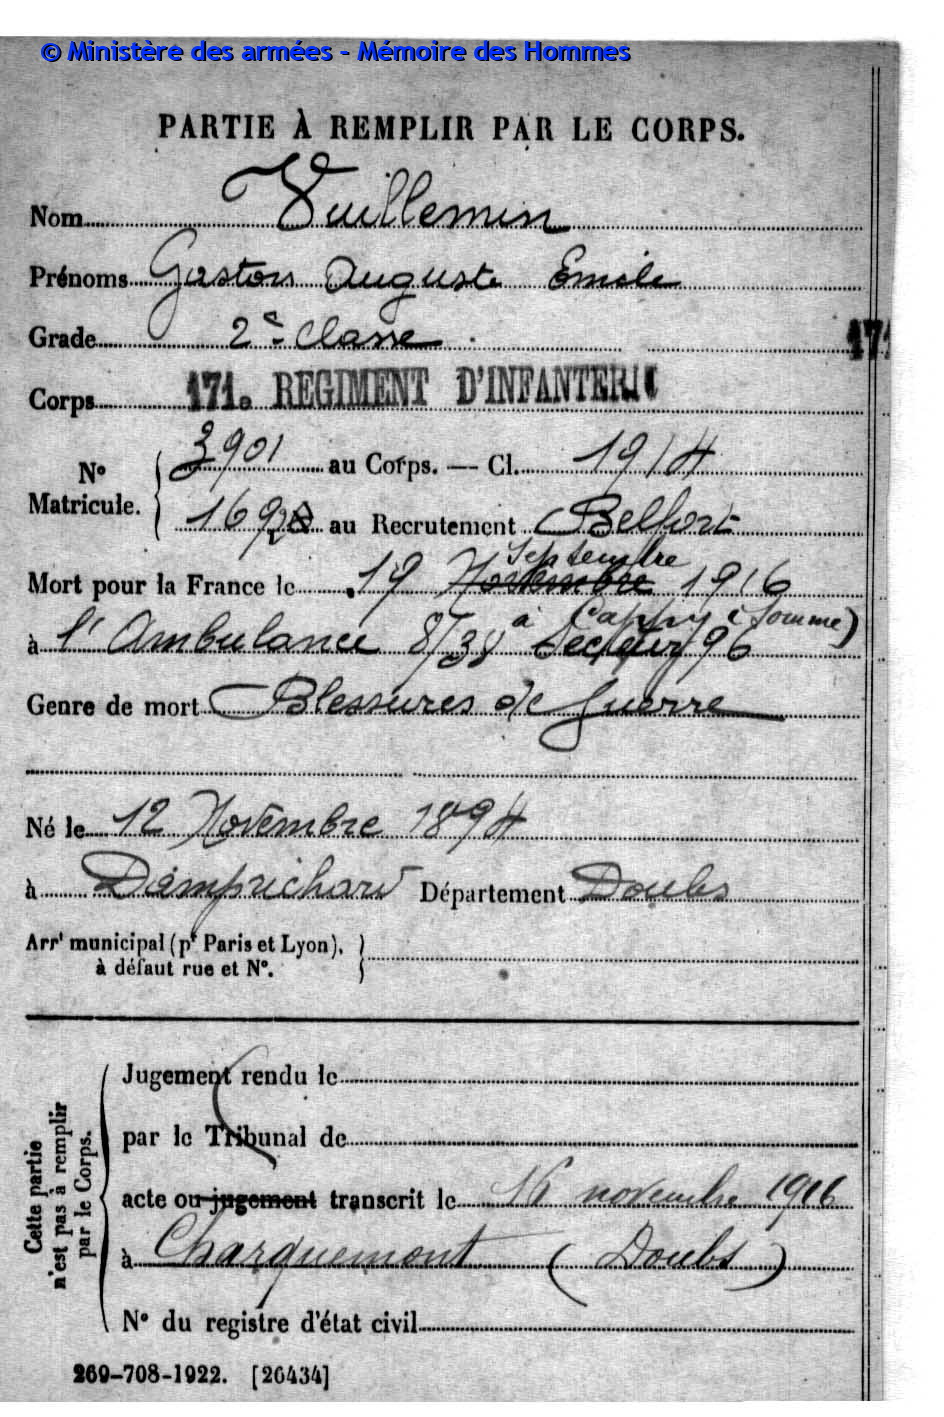 © Ministère des armées - Mémoire des Hommes
PARTIE À REMPLIR PAR LE CORPS.
Nom Vuillemin
Prénoms Gaston Auguste Emile
Grade 2e Classe
171
Corps 171e REGIMENT D'INFANTERIE
N° Matricule. 3901 au Corps. — Cl. 1914
1692 au Recrutement Belfort
Septembre
Mort pour la France le 19 Novembre 1916
à Cappy (Somme)
à l'Ambulance 8/38 Secteur 96
Genre de mort Blessures de Guerre
Né le 12 Novembre 1894
à Damprichard Département Doubs
Arrt municipal (pt Paris et Lyon),
à défaut rue et N°.
Cette partie
n'est pas à remplir
par le Corps.
Jugement rendu le
par le Tribunal de
acte ou jugement transcrit le 16 novembre 1916
à Charquemont (Doubs)
N° du registre d'état civil
269-708-1922. [26434]